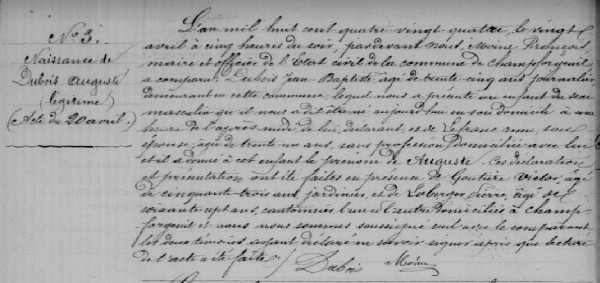 N° 3.
Naissance de
Dubois Auguste
(légitime)
(Acte du 20 avril.)
L'an mil huit cent quatre vingt quatre, le vingt
avril à cinq heures du soir, pardevant nous, Moine François,
maire et officier de l'Etat civil de la commune de Champforgeuil
a comparu Dubois Jean Baptiste âgé de trente cinq ans, journalier
demeurant en cette commune, lequel nous a présenté un enfant du sexe
masculin qu'il nous a dit être né aujourd'hui en son domicile à une
heure de l'après midi de lui, déclarant, et de Lefranc son
épouse, âgée de trente un ans, sans profession, domiciliée avec lui
et il a donné à cet enfant le prénom de Auguste. Ces déclaration
et présentation ont été faites en présence de Goutière Victor, âgé
de cinquante trois ans jardinier, et de Leberger Pierre, âgé de
soixante sept ans, cantonnier, l'un et l'autre domiciliés à Champ-
forgeuil et nous nous sommes soussigné seul avec le comparant,
les deux témoins ayant déclaré ne savoir signer après que lecture
de l'acte a été faite. / Dubois Moine